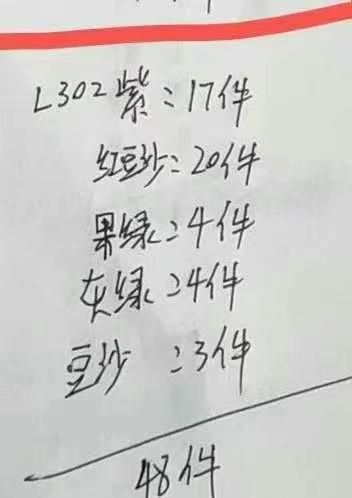 L302紫:17件
红豆沙:20件
果绿:4件
灰绿:4件
豆沙:3件
48件